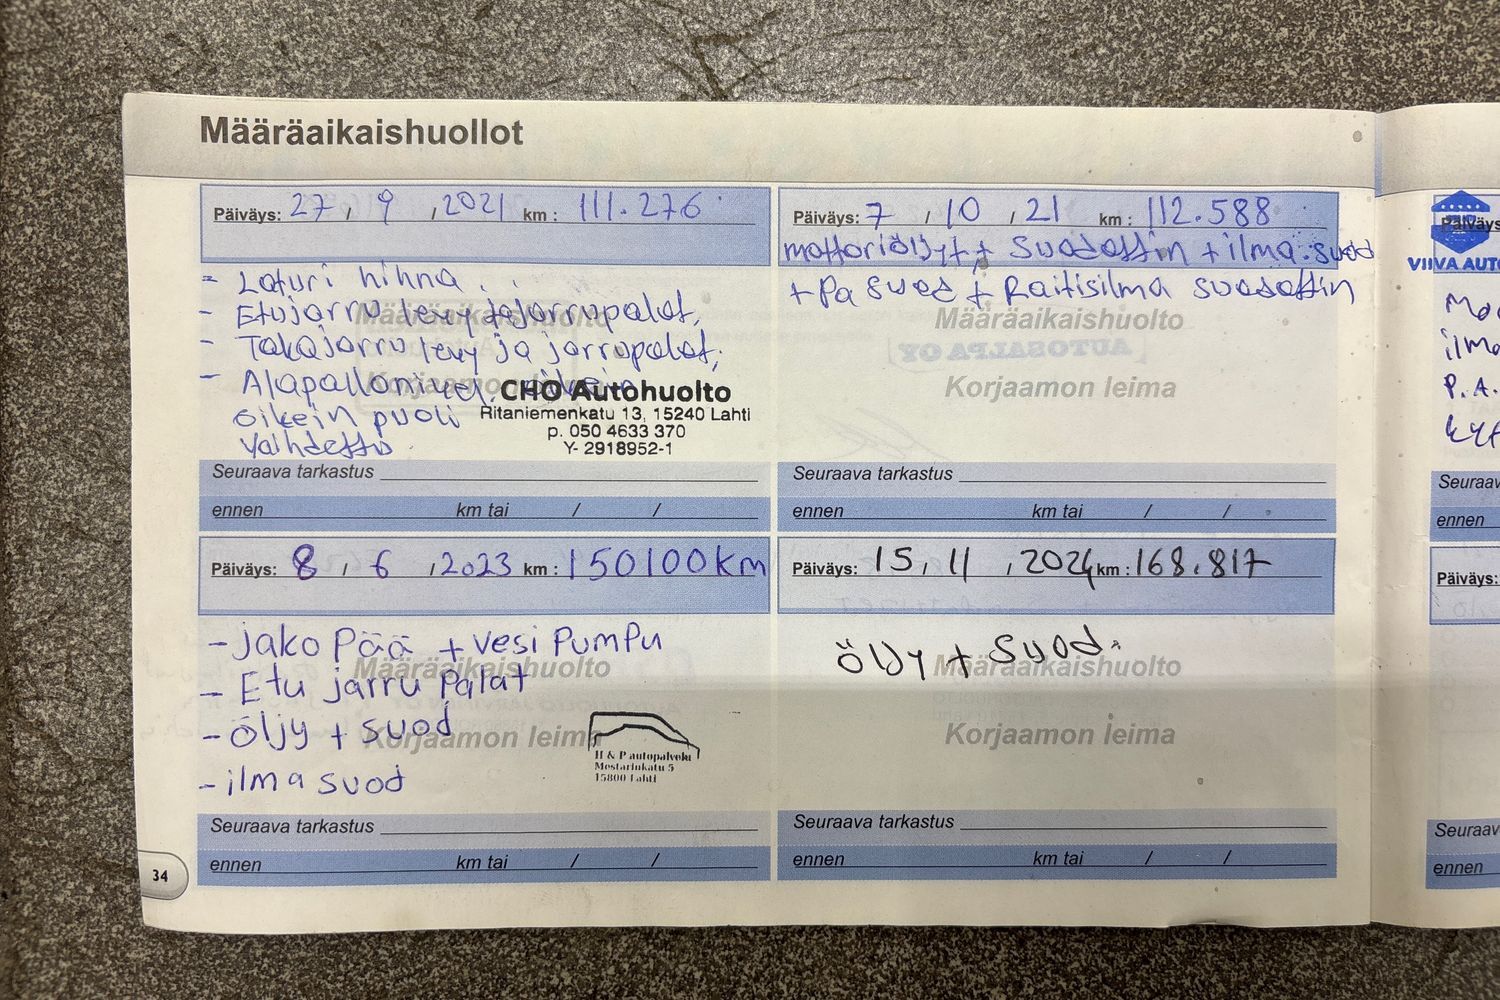 Määräaikaishuollot
Päiväys: 27 / 9 / 2021 km : 111.276
- Laturi hihna
- Etujarru levy jajarrupalat,
- Takajarru levy ja jarrupalat,
- Alapallonivel
oikein puoli
Vaihdettu
Määräaikaishuolto
Korjaamon leima
CHO Autohuolto
Ritaniemenkatu 13, 15240 Lahti
p. 050 4633 370
Y- 2918952-1
Seuraava tarkastus
ennen km tai / /
Päiväys: 7 / 10 / 21 km : 112.588
mottoriöljyt + suodattin + ilma.suod
+ Pa suod + Raitisilma suodattin
Määräaikaishuolto
Korjaamon leima
Seuraava tarkastus
ennen km tai / /
Päiväys: 8 / 6 / 2023 km : 150100km
- jako Pää + vesi Pumpu
- Etu jarru Palat
- öljy + suod
- ilma suod
Määräaikaishuolto
Korjaamon leima
H & P autopalvelu
Mestarinkatu 5
15800 Lahti
Seuraava tarkastus
ennen km tai / /
Päiväys: 15 / 11 / 2024 km : 168.817
öljy + suod.
Määräaikaishuolto
Korjaamon leima
Seuraava tarkastus
ennen km tai / /
34
Päiväys
VIIVA AUTO
ilma
P.A.
Seuraav
ennen
Päiväys:
Seuraav
ennen